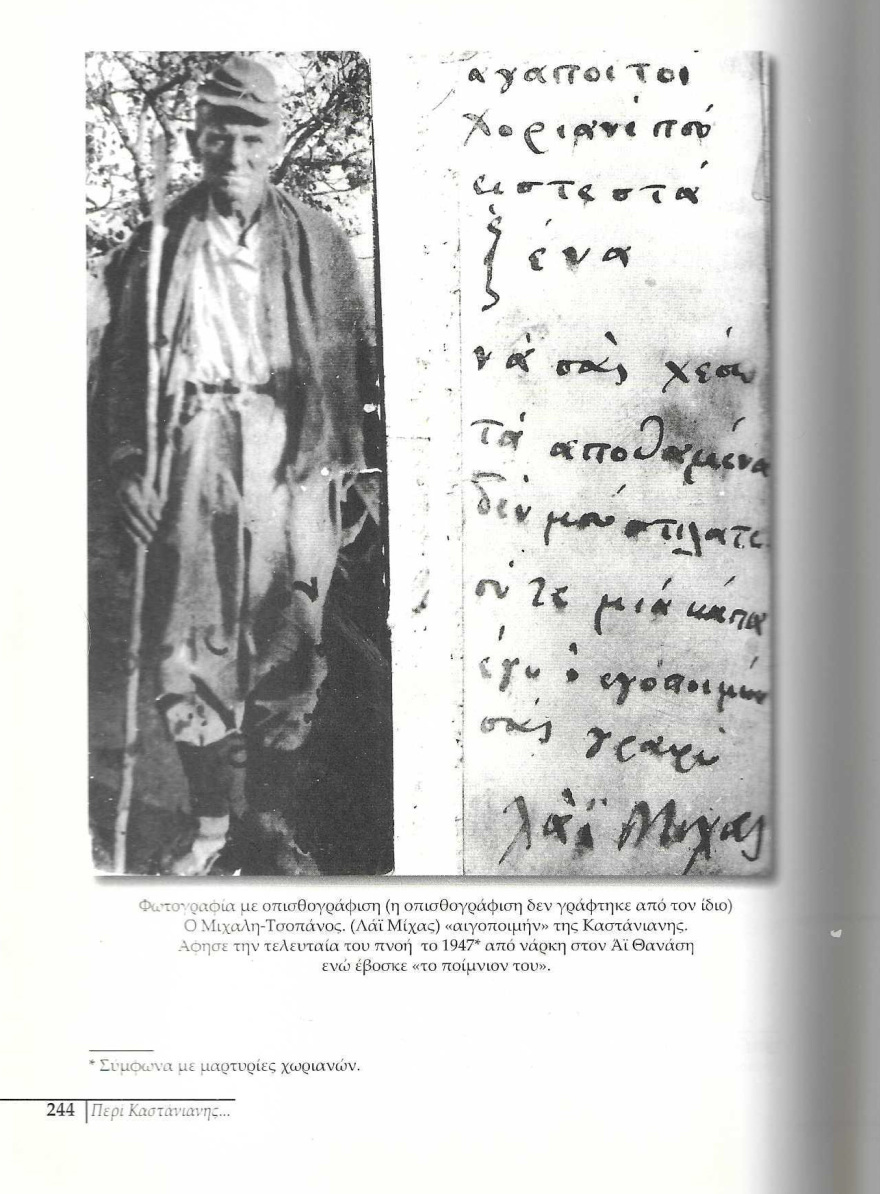 αγαποι τοι
χοριανί πού
ειστε στά
ξένα
νά σάς χέσω
τά αποθαμένα
δέν μού στιλατε
ού τε μιά κάπα
έγω ό εγόποιμών
σάς γραφι
λάϊ Μιχας
Φωτογραφία με οπισθογράφιση (η οπισθογράφιση δεν γράφτηκε από τον ίδιο)
Ο Μιχαλη-Τσοπάνος. (Λάϊ Μίχας) «αιγοποιμήν» της Καστάνιανης.
Αφησε την τελευταία του πνοή το 1947* από νάρκη στον Άϊ Θανάση
ενώ έβοσκε «το ποίμνιον του».
* Σύμφωνα με μαρτυρίες χωριανών.
244 Περί Καστάνιανης...